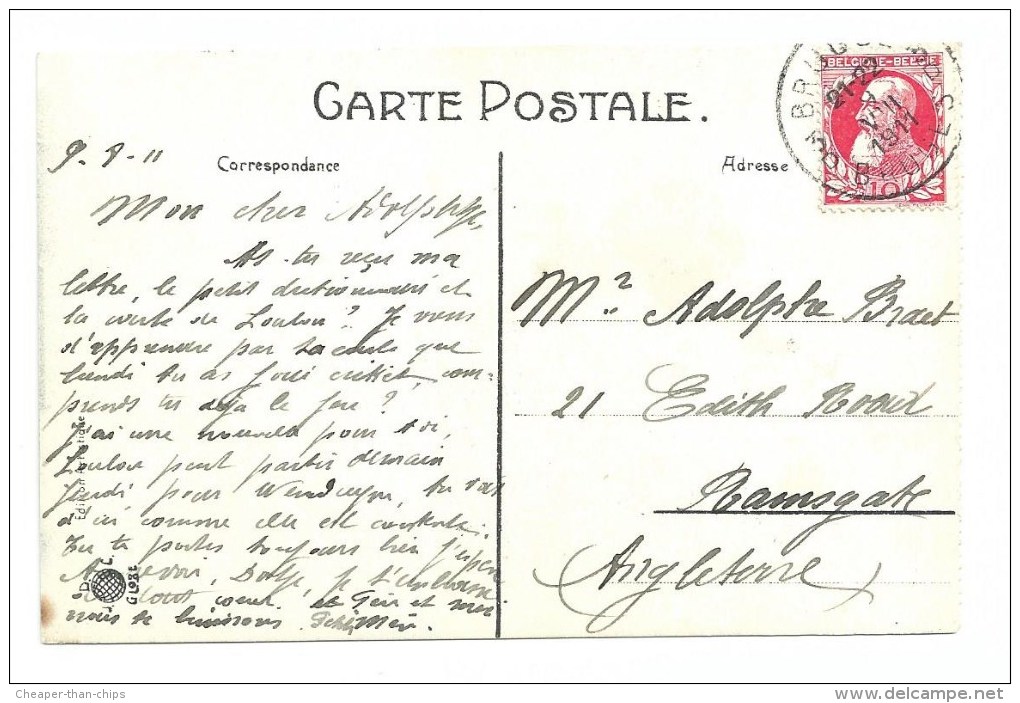 CARTE POSTALE.
9-8-11
Correspondance
Mon cher Adolphe,
As-tu reçu ma
lettre, le petit dictionnaire et
la carte de Loulou? Je viens
d'apprendre par ta carte que
lundi tu as joué cricket, com-
prends tu déja le jeu?
J'ai une nouvelle pour toi,
Loulou peut partir demain
jeudi pour Wenduyne, tu vas
comme elle est contente.
Tu te portes toujours bien j'espère
revoir, Dolf, je t'embrasse
de tout coeur et Père et moi
nous te bénissons. Mère.
Edition Artistique
GLOBE
Adresse
BELGIQUE-BELGIË
10
BRUGGE
21-22
9
VIII
1911
BRUGES
Mr. Adolphe Braet
21 Edith Road
Ramsgate
Angleterre
Cheaper-than-chips
www.delcampe.net